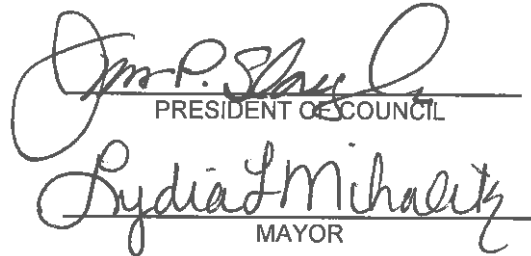 P.
PRESIDENT OF COUNCIL
Lydia L Mihalik
MAYOR